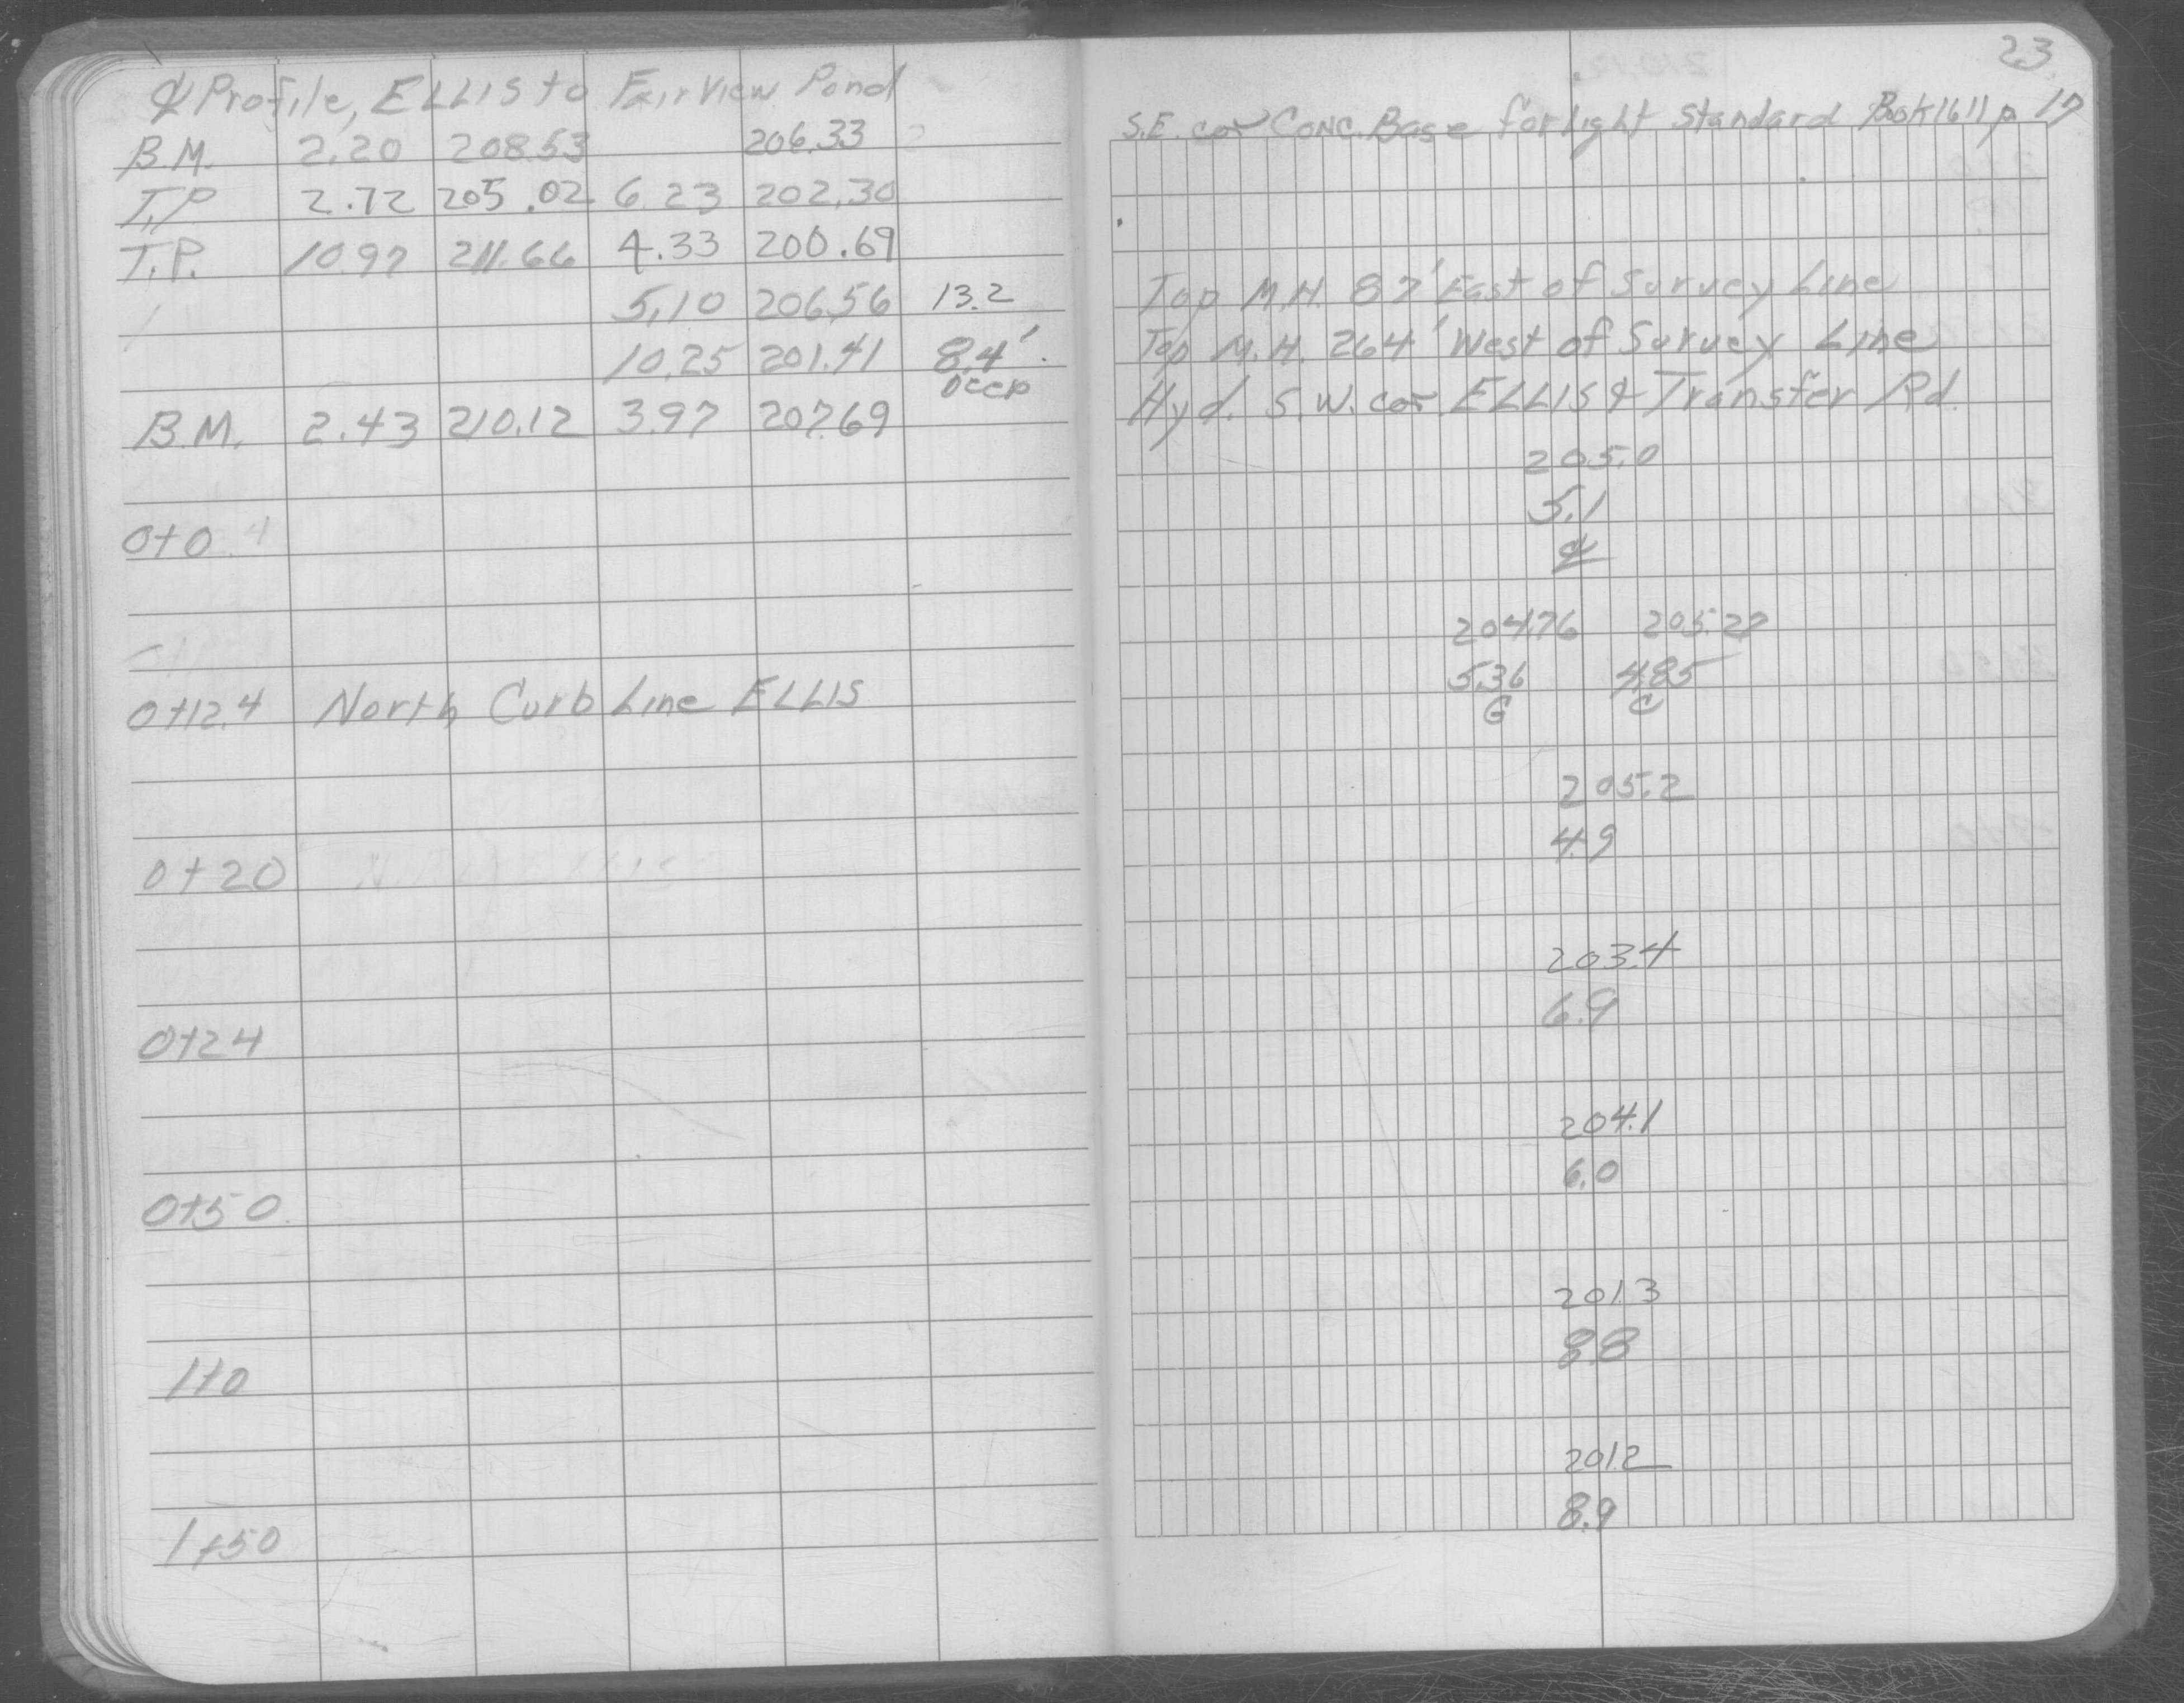 ℄ Profile, ELLIS to Fairview Pond
B.M. 2.20 208.53 206.33
T.P 2.72 205.02 6.23 202.30
T.P. 10.97 211.66 4.33 200.69
5.10 206.56 13.2
10.25 201.41 8.4'
Deep
B.M. 2.43 210.12 3.97 207.69
0+0
0+12.4 North Curb Line ELLIS
0+20
0+24
0+50
1+0
1+50
23
S.E. cor Conc. Base for Light Standard Book 1611 p 17
Top M.H. 87' East of Survey Line
Top M.H. 264' West of Survey Line
Hyd. S.W. cor. ELLIS & Transfer Rd.
205.0
5.1
℄
204.76 205.27
5.36 4.85
G C
205.2
4.9
203.4
6.9
204.1
6.0
201.3
8.8
201.2
8.9